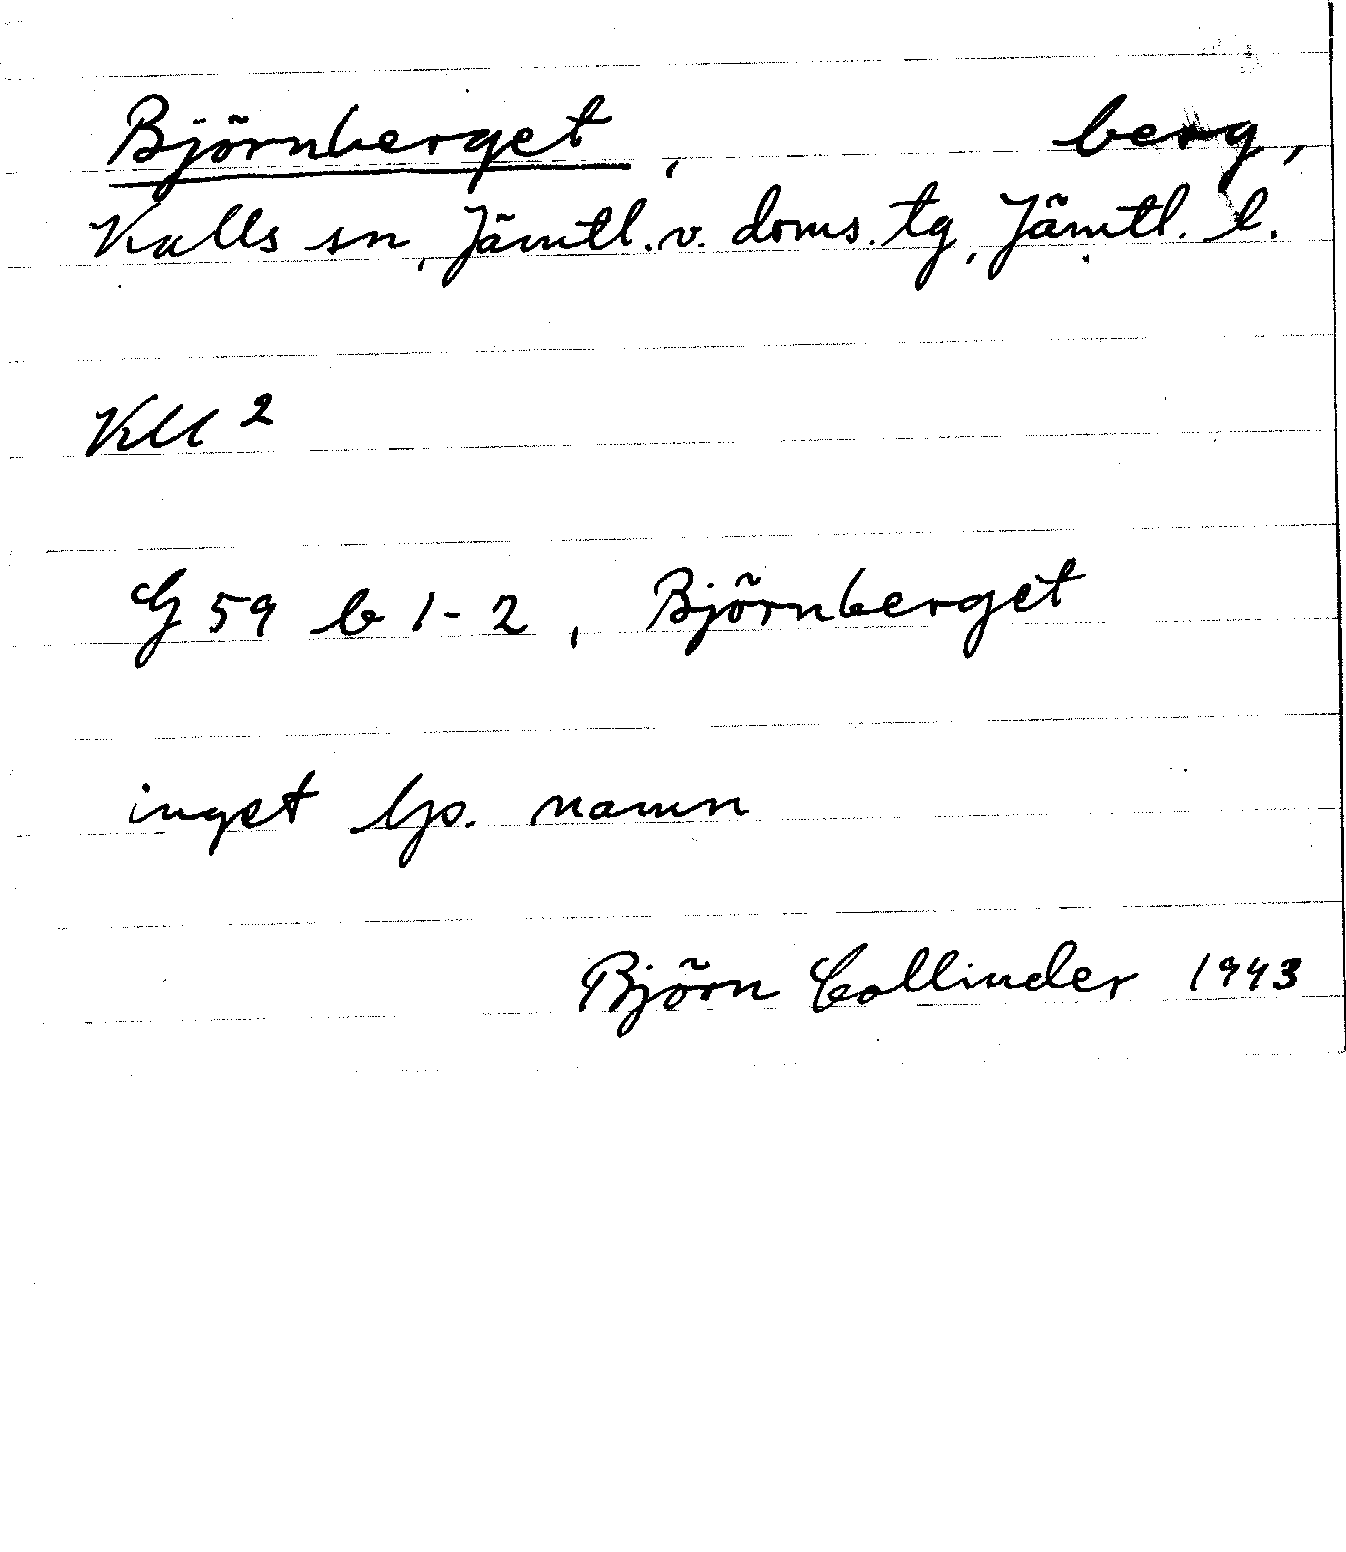 Björnberget, berg,
Kalls sn, Jämtl. v. doms. tg, Jämtl. l.
Kll 2
G 59 b 1-2, Björnberget
inget lp. namn
Björn Collinder 1943